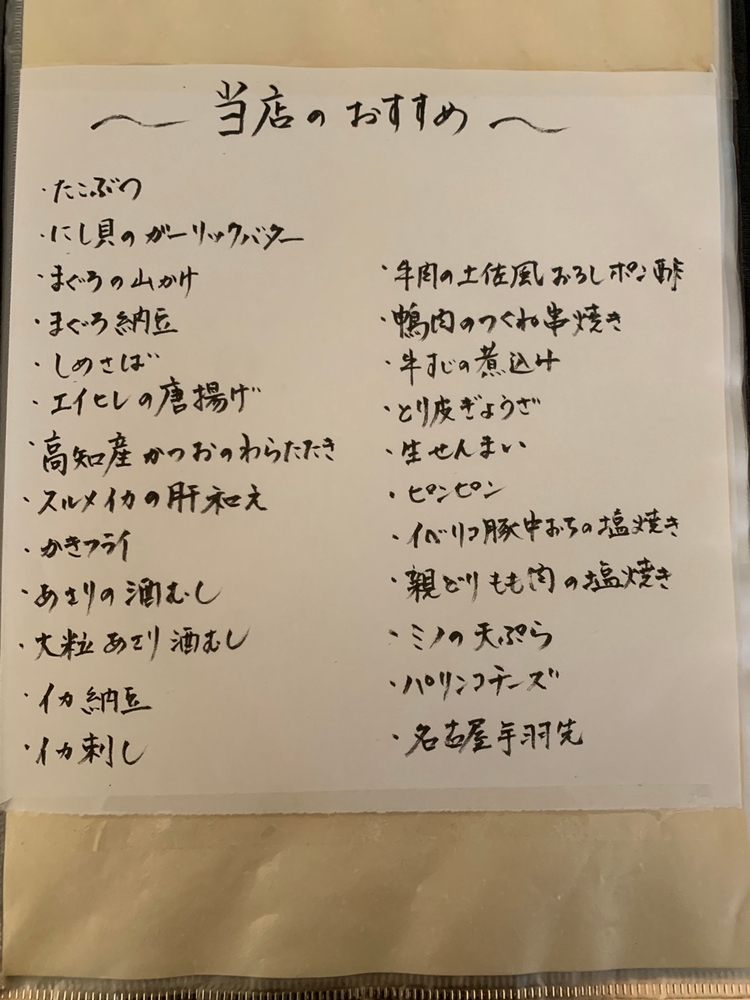 〜 当店のおすすめ 〜
・たこぶつ
・にし貝のガーリックバター
・まぐろの山かけ
・まぐろ納豆
・しめさば
・エイヒレの唐揚げ
・高知産かつおのわらたたき
・スルメイカの肝和え
・かきフライ
・あさりの酒むし
・大粒あさり酒むし
・イカ納豆
・イカ刺し
・牛肉の土佐風おろしポン酢
・鴨肉のつくね串焼き
・牛すじの煮込み
・とり皮ぎょうざ
・生せんまい
・ピンピン
・イベリコ豚中おちの塩焼き
・親どりもも肉の塩焼き
・ミノの天ぷら
・パリンコチーズ
・名古屋手羽先